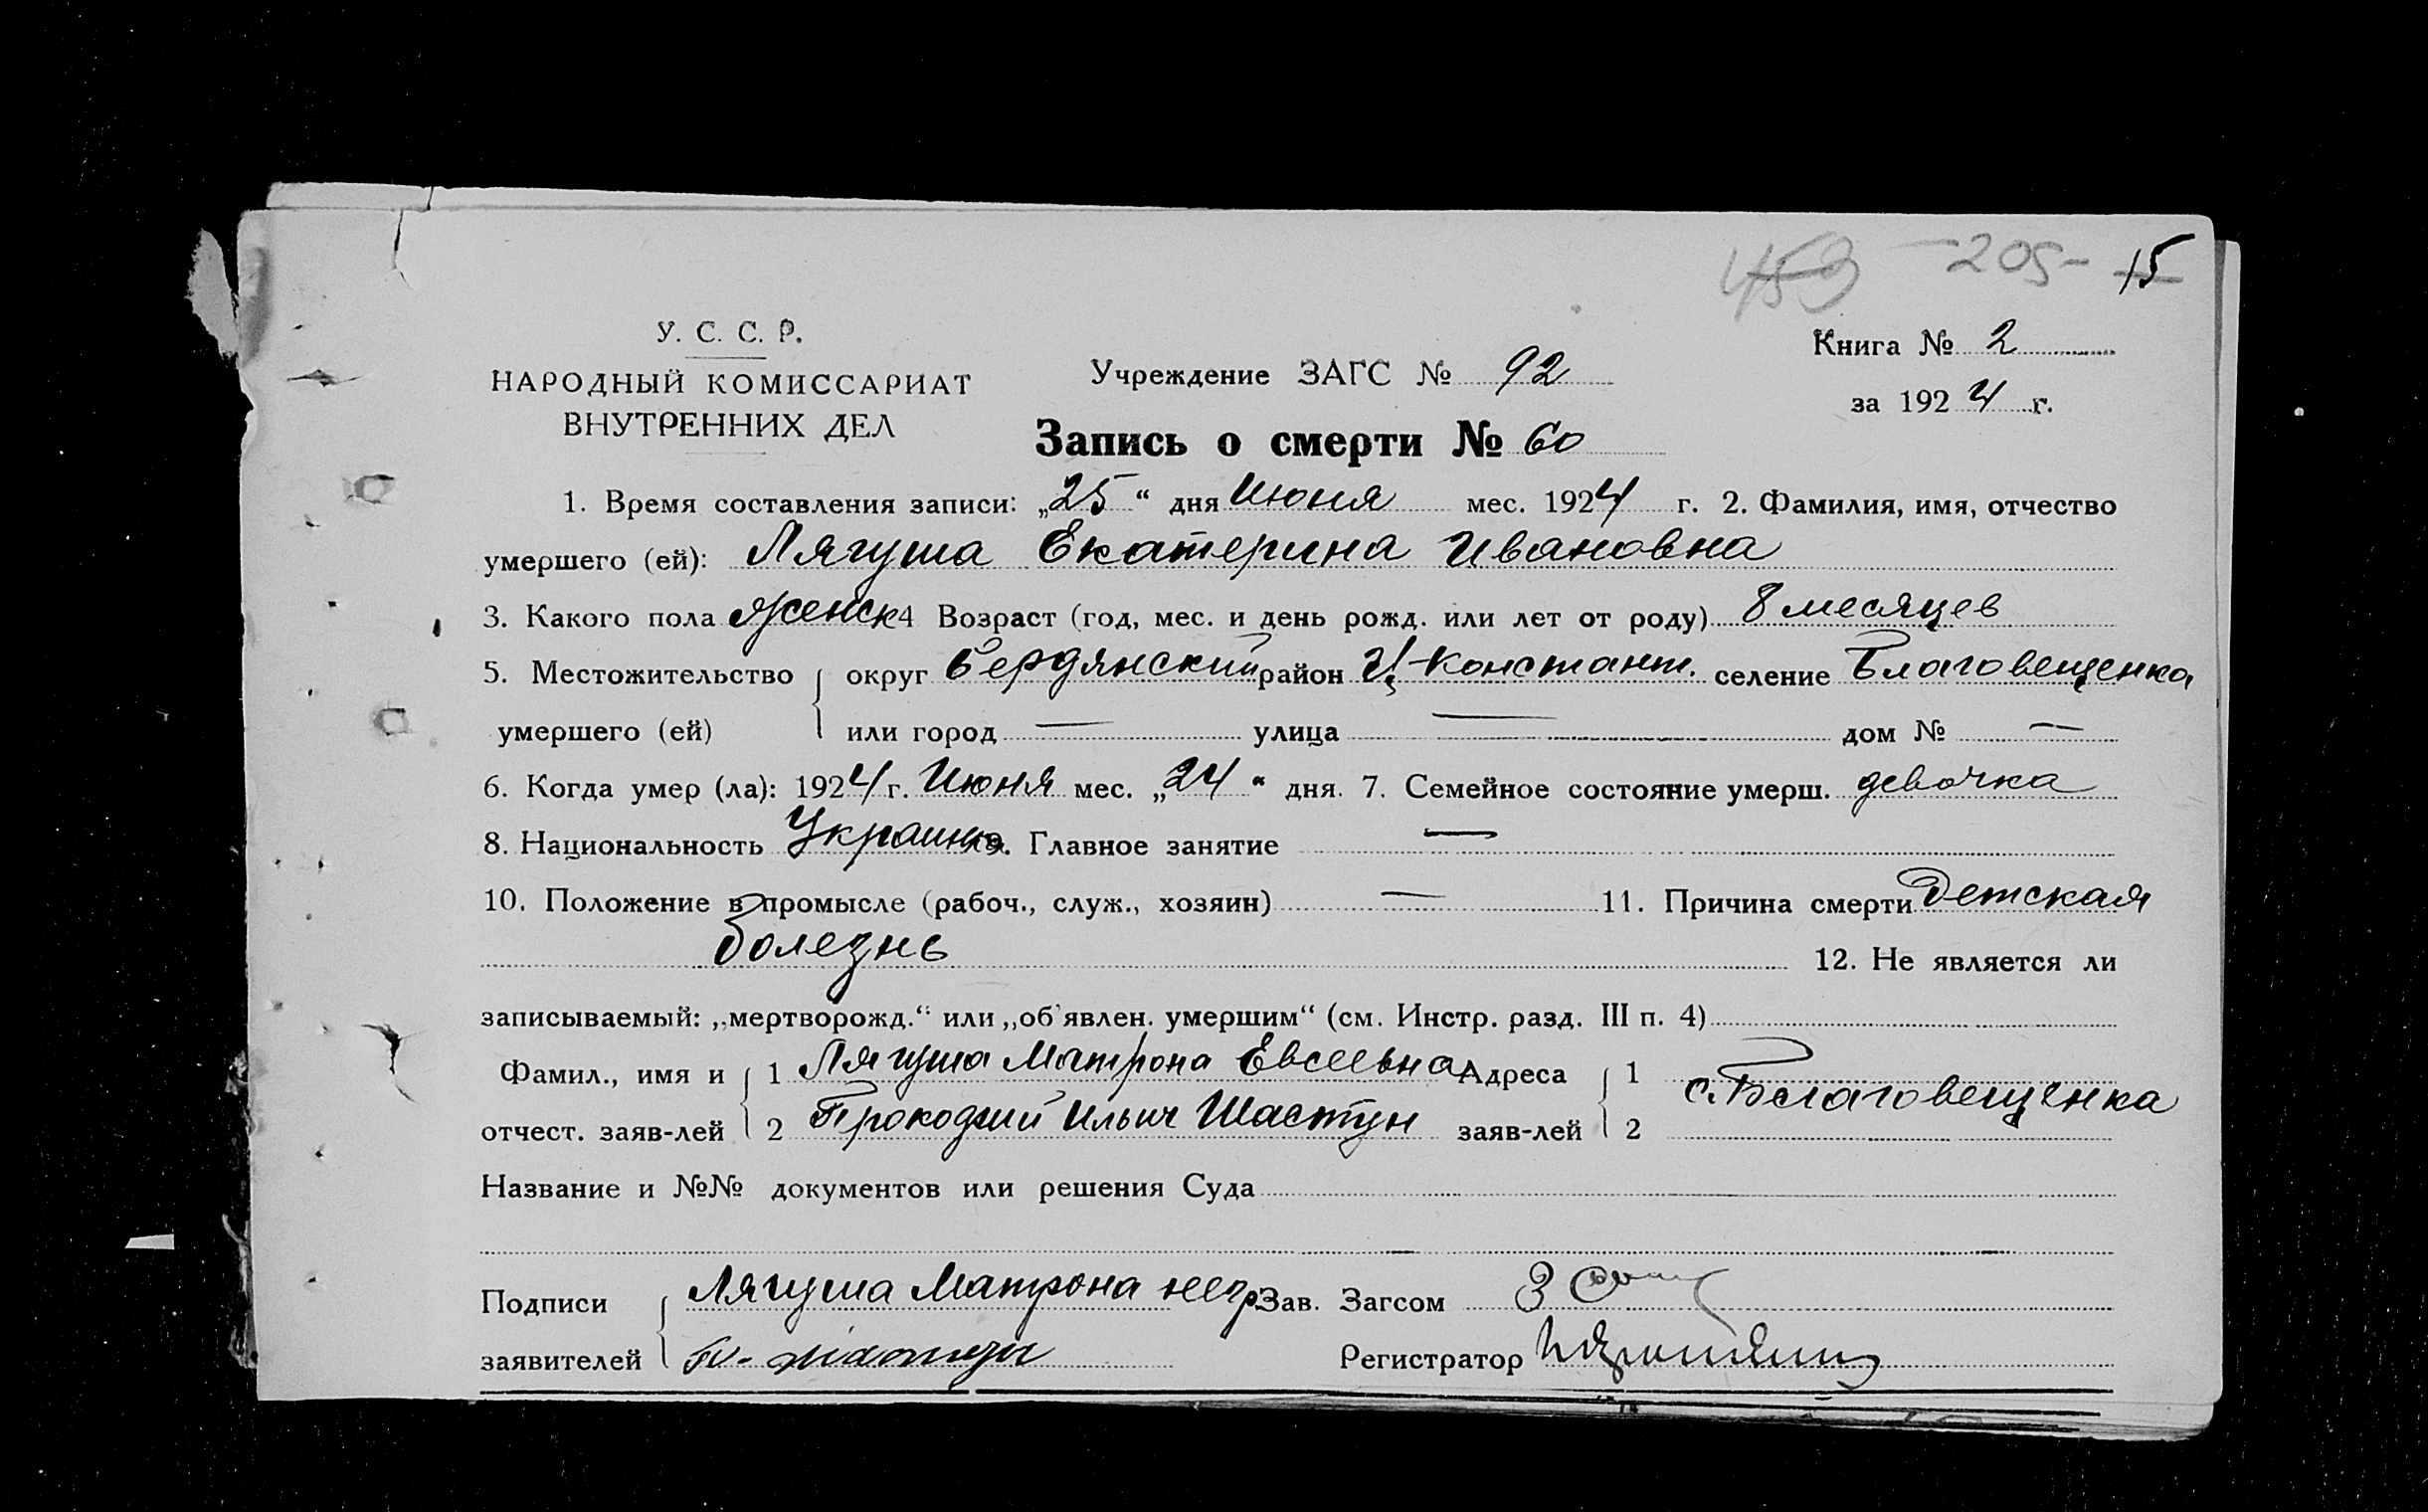 459 -205- 15
У. С. С. Р.
НАРОДНЫЙ КОМИССАРИАТ
ВНУТРЕННИХ ДЕЛ
Учреждение ЗАГС № 92
Книга № 2
за 1924 г.
Запись о смерти № 60
1. Время составления записи: „25“ дня Июня мес. 1924 г. 2. Фамилия, имя, отчество
умершего (ей): Лягуша Екатерина Ивановна
3. Какого пола женск 4 Возраст (год, мес. и день рожд. или лет от роду) 8 месяцев
5. Местожительство { округ Бердянский район Ц-Констант. селение Благовещенка
умершего (ей) или город — улица — дом № —
6. Когда умер (ла): 1924 г. Июня мес. „24“ дня. 7. Семейное состояние умерш. девочка
8. Национальность Украин. 9. Главное занятие —
10. Положение в промысле (рабоч., служ., хозяин) — 11. Причина смерти Детская
болезнь 12. Не является ли
записываемый: „мертворожд.“ или „об'явлен. умершим“ (см. Инстр. разд. III п. 4)
Фамил., имя и { 1 Лягуша Матрона Евсеевна Адреса { 1 с. Благовещенка
отчест. заяв-лей 2 Прокофий Ильич Шастун заяв-лей 2
Название и №№ документов или решения Суда
Подписи { Лягуша Матрона негр Зав. Загсом
заявителей Регистратор